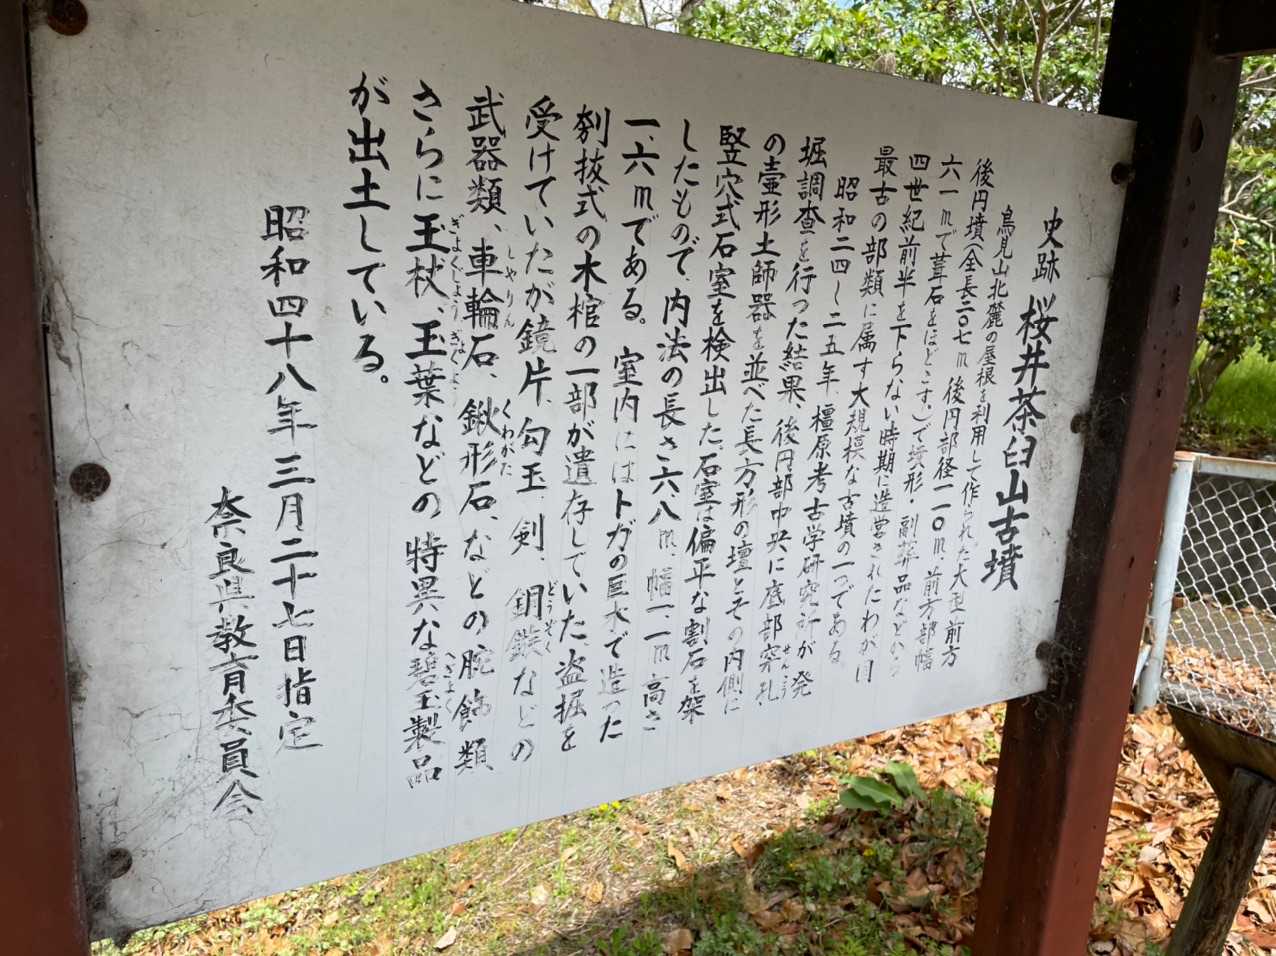 史跡 桜井茶臼山古墳
鳥見山北麓の屋根を利用して作られた大型前方
後円墳(全長二〇七m 後円部径一一〇m、前方部幅
六一mで葺石をほどこす。)で墳形、副葬品などから
四世紀前半を下らない時期に造営されたわが国
最古の部類に属す大規模な古墳の一つである
昭和二四〜二五年、橿原考古学研究所が発
堀調査を行った結果、後円部中央に底部穿孔
の壷形土師器を並べた長方形の壇とその内側に
竪穴式石室を検出した。石室は偏平な割石を架
したもので、内法の長さ六、八m、幅一、一m高さ
一、六mである。室内にはトガの巨木で造った
刳抜式の木棺の一部が遺存していた。盗掘を
受けていたが鏡片、勾玉、剣、銅鏃などの
武器類、車輪石、鍬形石、などの腕飾類
さらに玉杖、玉葉などの特異な碧玉製品
が出土している。
昭和四十八年三月二十七日指定
奈良県教育委員会